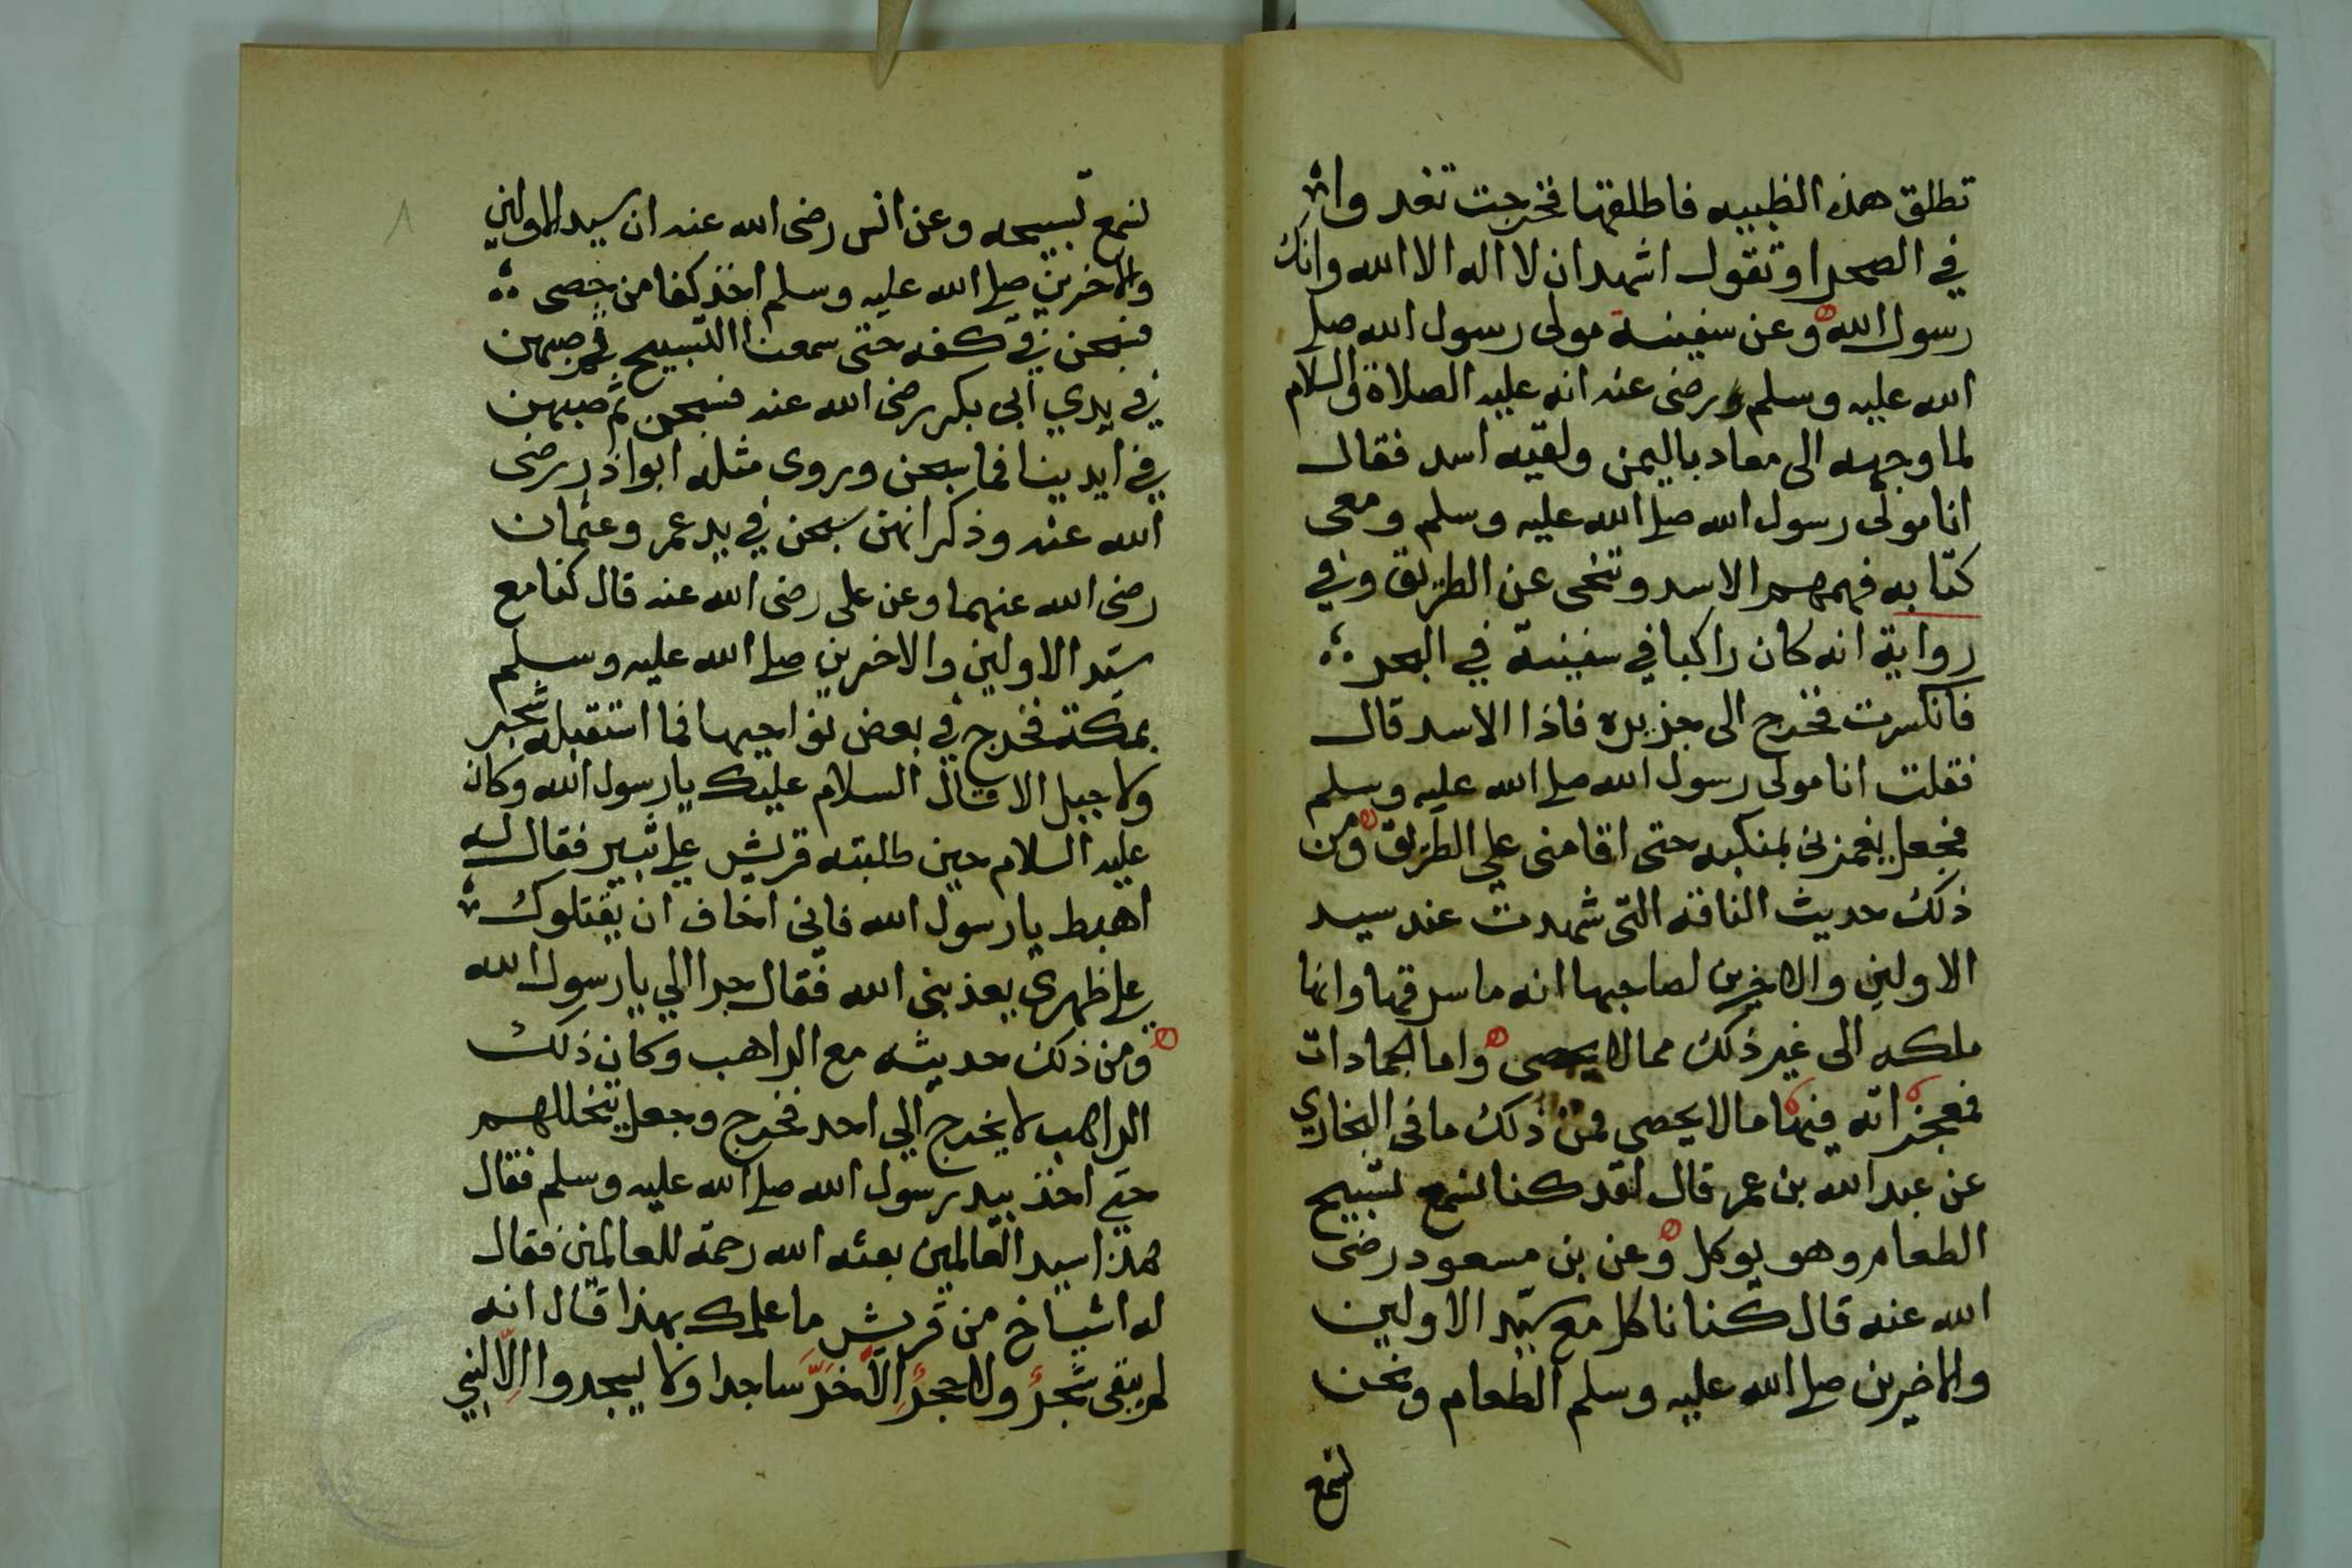 تطلق هذه الظبيه فاطلقها فخرجت تغدوا
في الصحرا وتقول اشهد ان لا اله الا الله وانك
رسول الله وعن سفينة مولى رسول الله صلى
الله عليه وسلم ورضى عنه انه عليه الصلاة والسلام
لما وجهه الى معاد باليمن ولقيه اسد فقال
انا مولى رسول الله صلى الله عليه وسلم ومعى
كتابه فهمهم الاسد وتنحى عن الطريق وفي
رواية انه كان راكبا في سفينة في البحر
فانكسرت فخرج الى جزيره فاذا الاسد قال
فقلت انا مولى رسول الله صلى الله عليه وسلم
فجعل يغمزنى بمنكبه حتى اقامنى علي الطريق ومن
ذلك حديث الناقه التى شهدت عند سيد
الاولين والاخرين لصاحبها انه ما سرقها وانها
ملكه الى غير ذلك مما لا يحصى واما الجمادات
فمعجزاته فيها مما لا يحصى فمن ذلك ما فى البخاري
عن عبد الله بن عمر قال لقد كنا نسمع تسبيح
الطعام وهو يوكل وعن بن مسعود رضى
الله عنه قال كنا ناكل مع سيد الاولين
والاخرين صلى الله عليه وسلم الطعام ونحن
نسمع
٨
نسمع تسبيحه وعن انس رضى الله عنه ان سيد الاولين
والاخرين صلى الله عليه وسلم اخذ كفا من حصى
فسبحن في كفه حتى سمعنا التسبيح ثم صبهن
في يدي ابى بكر رضى الله عنه فسبحن ثم صبهن
في ايدينا فما سبحن وروى مثله ابوا ذر رضى
الله عنه وذكر انهن سبحن في يد عمر وعثمان
رضى الله عنهما وعن على رضى الله عنه قال كنا مع
سيد الاولين والاخرين صلى الله عليه وسلم
بمكة فخرج في بعض نواحيها فما استقبله شجر
ولا جبل الا قال السلام عليك يا رسول الله وكان
عليه السلام حين طلبته قريش على ثبير فقال له
اهبط يا رسول الله فانى اخاف ان يقتلوك
على ظهرى يعذبنى الله فقال حرا الي يا رسول الله
ومن ذلك حديثه مع الراهب وكان ذلك
الراهب لا يخرج الي احد فخرج وجعل يتخللهم
حتى اخذ بيد رسول الله صلى الله عليه وسلم فقال
هذا سيد العالمين بعثه الله رحمة للعالمين فقال
له اشياخ من قريش ما علمك بهذا قال انه
لم يبقى شجرٌ ولا حجرٌ اِلاّ خَرَّ ساجدا ولا يسجدوا اِلاّ لنبي